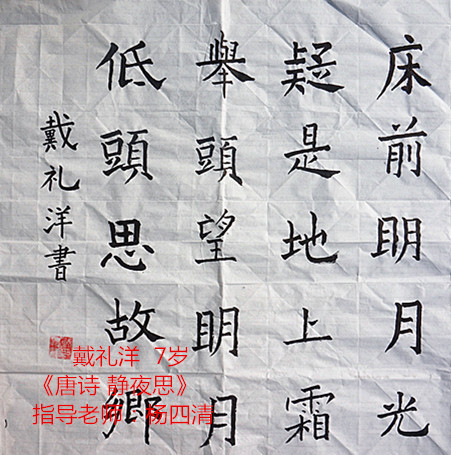 床前明月光
疑是地上霜
舉頭望明月
低頭思故鄉
戴礼洋書
戴礼洋 7岁
《唐诗 静夜思》
指导老师：杨四清